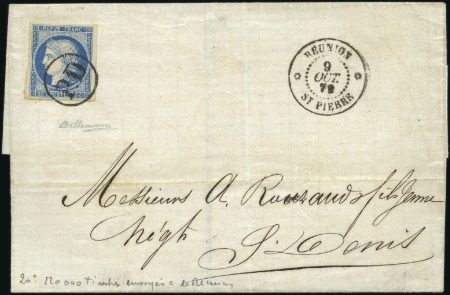 REPUB. FRANC.
PD
RÉUNION
9
OCT.
72
ST PIERRE
Messieurs A. Rouzaud & fils Jeune
Négts
St Denis
20c 120 000 Timbres envoyés à